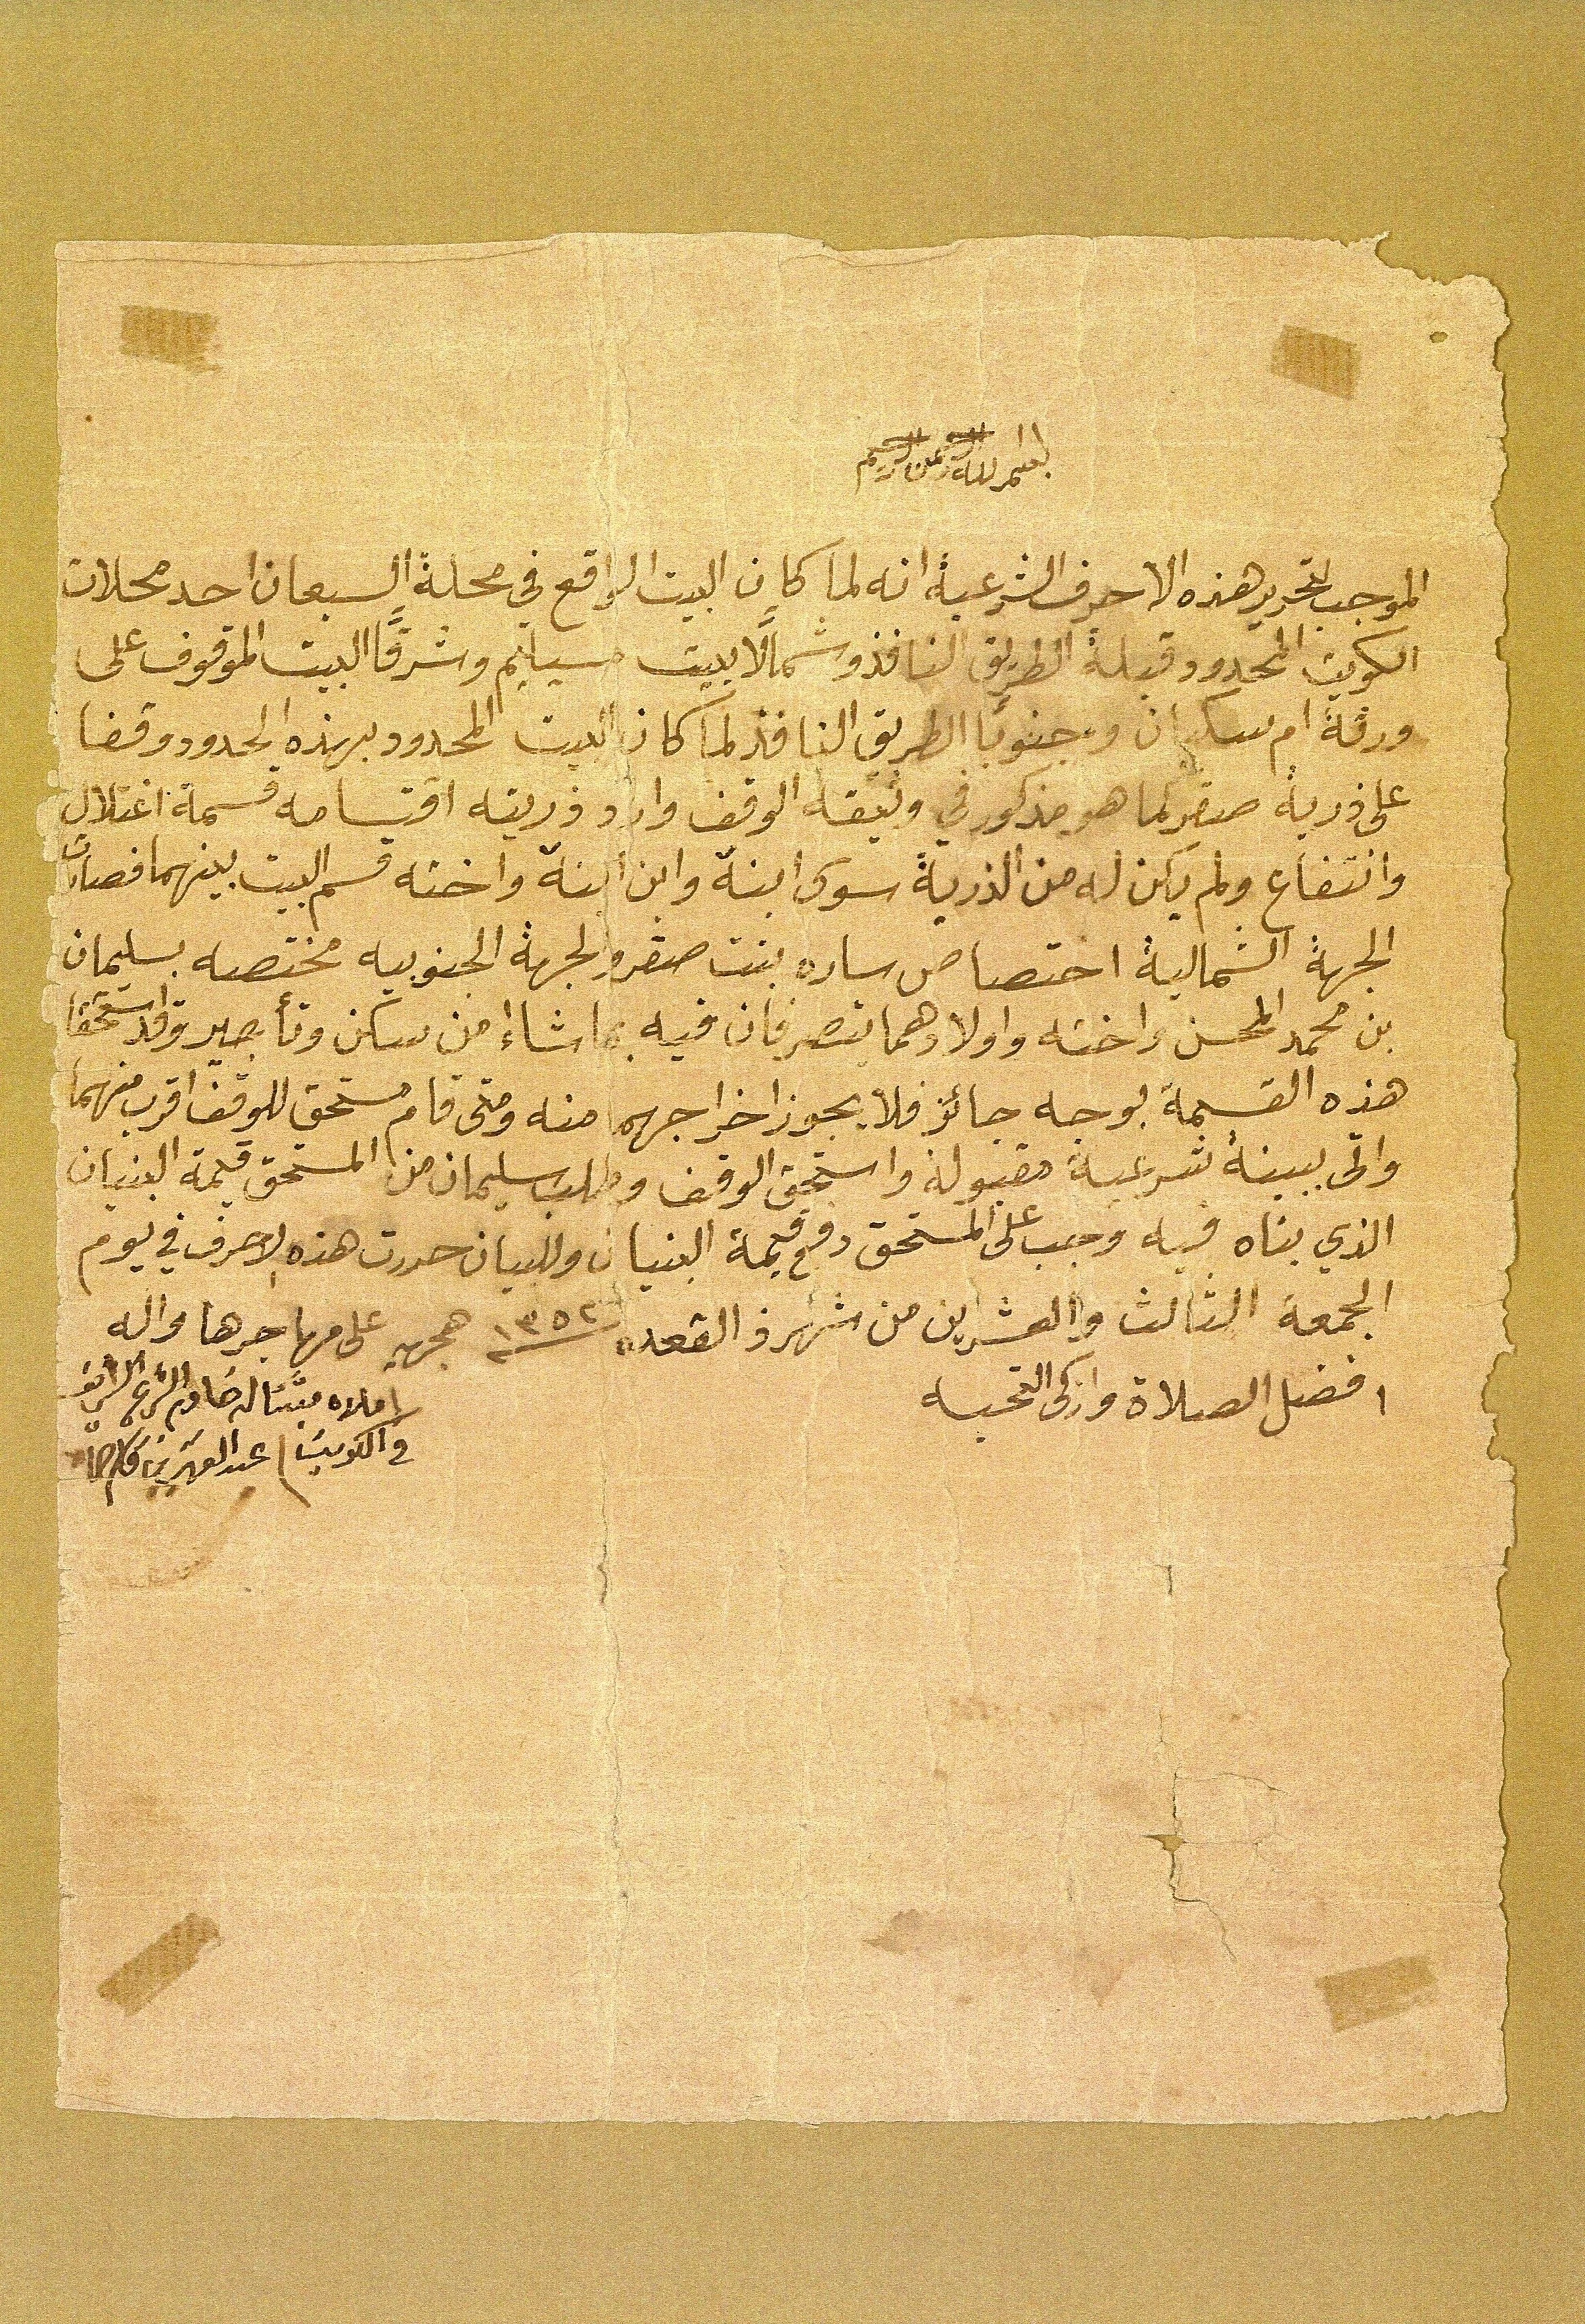 بسم الله الرحمن الرحيم
الموجب لتحرير هذه الاحرف الشرعية انه لما كان البيت الواقع في محلة السبعان احد محلات
الكويت المحدود قبلة الطريق النافذ وشمالًا بيت مسيليم وشرقًا البيت الموقوف على
ورثة ام سكبان وجنوبًا الطريق النافذ لما كان البيت المحدود بهذه الحدود وقفا
على ذرية صقر كما هو مذكور في وثيقة الوقف واراد ذريته اقتسامه قسمة اغتلال
وانتفاع ولم يكن له من الذرية سوى ابنة وابن ابنة واخته قسم البيت بينهما فصارت
الجهة الشمالية اختصاص ساره بنت صقر والجهة الجنوبيه مختصه بسليمان
بن محمد المحسن واخته واولادهما يتصرفان فيه بما شاءا من سكن وتأجير وقد استحقا
هذه القسمة بوجه جائز فلا يجوز اخراجهما منه ومتى قام مستحق للوقف اقرب منهما
واتى ببينة شرعية مقبولة واستحق الوقف وطلب سليمان من المستحق قيمة البنيان
الذي بناه فيه وجب على المستحق دفع قيمة البنيان وللبيان حررت هذه الاحرف في يوم
الجمعة الثالث والعشرين من شهر ذ القعده ١٣٥٢ هجريه على مهاجرها واله
افضل الصلاة وازكى التحيه
باملاه مثبتا له خادم الشرع الشريف
في الكويت عبد العزيز بن قاسم حماده